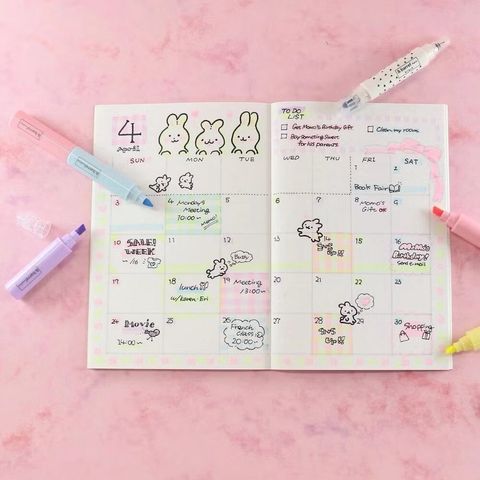 4
April
SUN MON TUE
TO DO
LIST
Get Momo's Birthday Gift
Buy Something Sweet
for his parents
Clean my room
WED THU FRI SAT
1 2
Book Fair
3 4 5 6 7 8 9
Monday's
Meeting
10:00~
Momo's
Gift
10 11 12 13 14 15 16
SALE!
WEEK
~16
Busy
Birthday!
17 18 19 20 21 22
lunch
w/ Karen
Meeting
13:00~
24 25 26 27 28 29 30
Movie
14:00~
French
Class
20:00~
Shopping